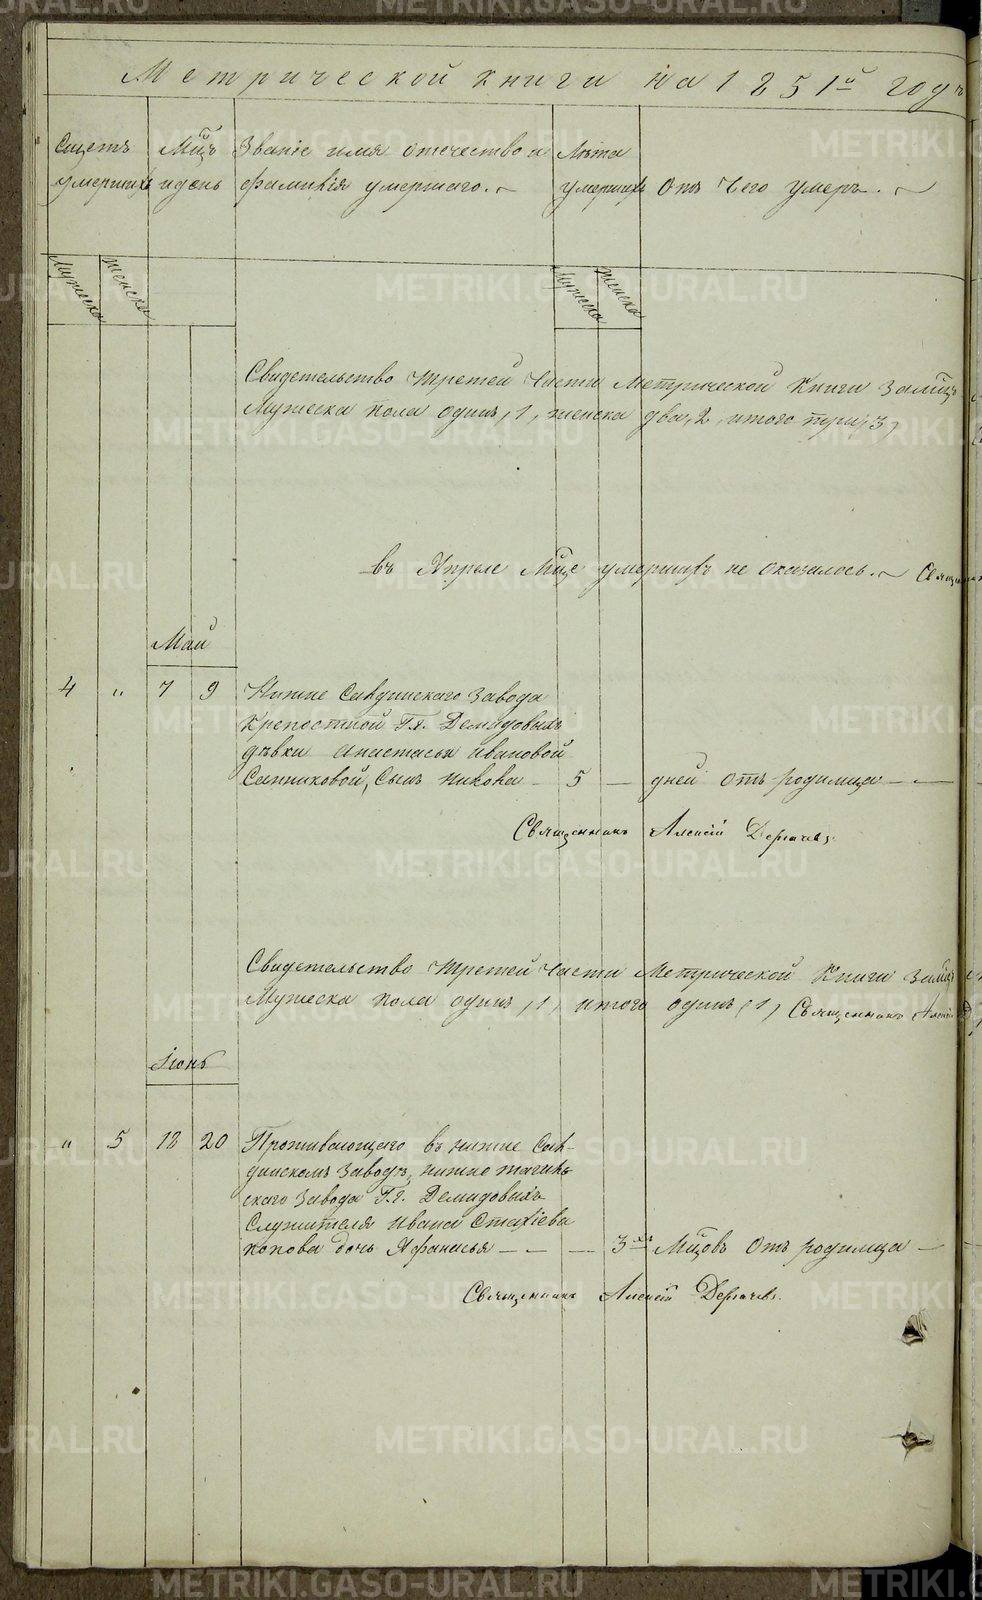 Метрической книги на 1851й годъ
Счетъ умершихъ
Мцъ и день
Званіе имя отечество и
фамилія умершаго.
Лѣта умершихъ
Отъ Чего умеръ.
Мужеска
женска
Мужеска
женска
Свидетельство Третей Части Метрической Книги За Мцъ
Мужеска пола одинъ, 1, женска два, 2, итого три, 3,
въ Апреле Мце умершихъ не оказалось.
Май
4 " 7 9 Нижне Салдинскаго Завода
Крепостной Г.г. Демидовыхъ
дѣвки Анастасьи Ивановой
Санниковой, Сынъ Никола — 5 — дней Отъ родимца —
Священникъ Алексій Дерначевъ.
Свидетельство Третей Части Метрической Книги За Мцъ
Мужеска пола одинъ, 1, итого одинъ, 1, Священникъ Алексій
Іюнь
" 5 18 20 Проживающаго въ Нижне Сал-
динскомъ Заводѣ, Нижне тагиль-
скаго Завода Г.г. Демидовыхъ
Служителя Ивана
Попова дочь Афанасья — — — 3хъ Мцовъ Отъ родимца —
Священникъ Алексій Дерначевъ.
METRIKI.GASO-URAL.RU